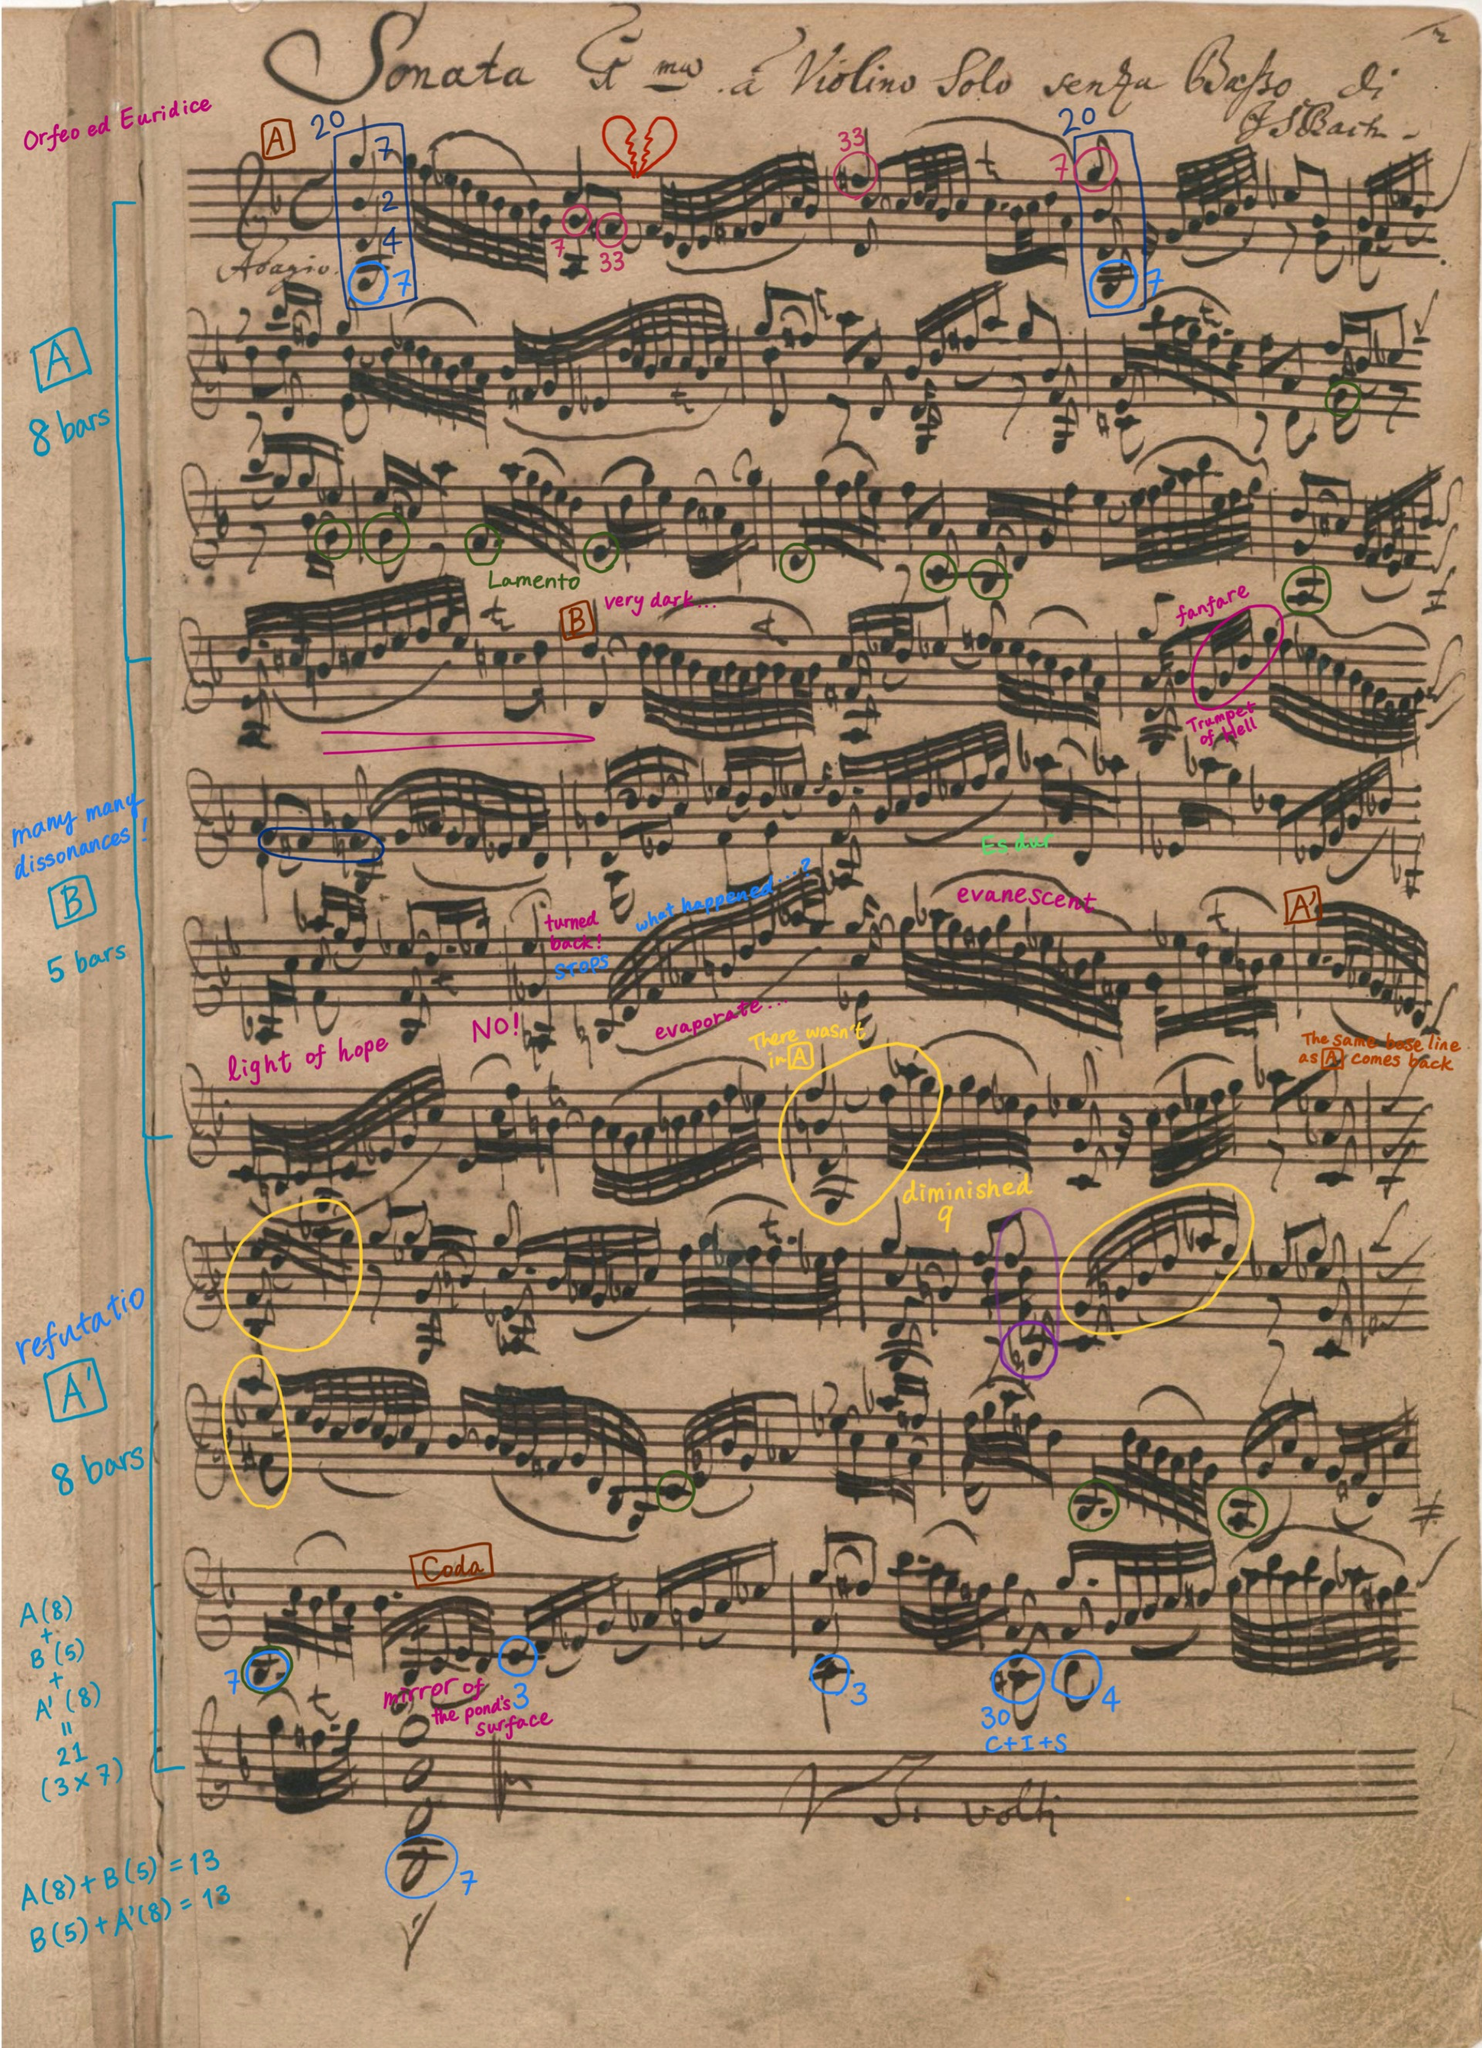 Sonata 1ma à Violino Solo senza Basso di
JSBach
Orfeo ed Euridice
A
20
7
2
4
7
7
33
33
20
7
7
Adagio.
A
8 bars
Lamento
B
very dark...
fanfare
Trumpet
of Hell
many many
dissonances!
B
5 bars
Es dur
what happened....?
evanescent
turned
back!
STOPS
A'
light of hope
NO!
evaporate...
There wasn't
in A
The same base line
as A comes back
diminished
9
refutatio
A'
8 bars
Coda
A(8)
+
B(5)
+
A'(8)
"
21
(3×7)
7
mirror of
the pond's
surface
3
3
30
C+I+S
4
volti
7
A(8)+B(5)=13
B(5)+A'(8)=13